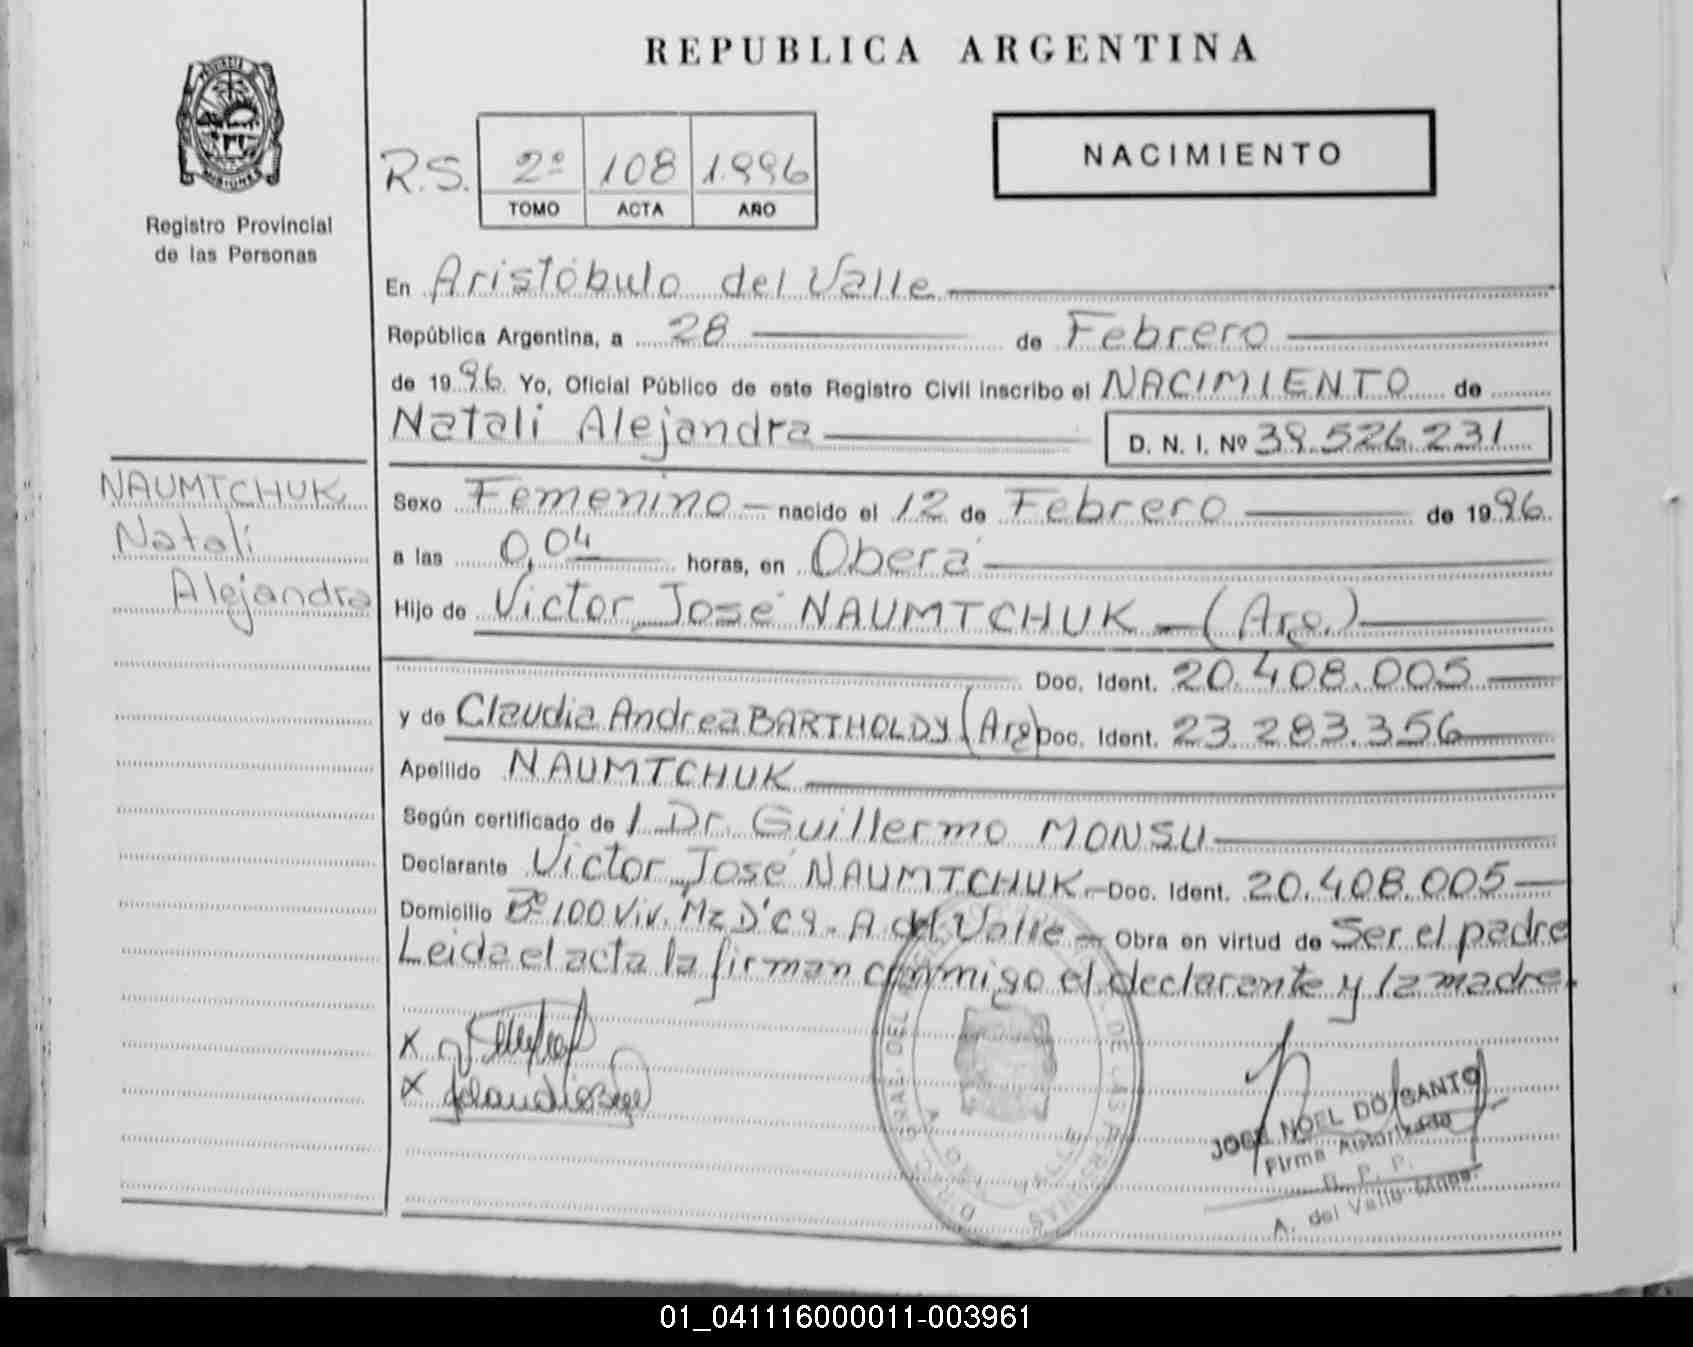 REPUBLICA ARGENTINA
PROVINCIA
MISIONES
Registro Provincial
de las Personas
R.S. 2º 108 1.996
TOMO ACTA AÑO
NACIMIENTO
En Aristóbulo del Valle
República Argentina, a 28 de Febrero
de 1996. Yo, Oficial Público de este Registro Civil inscribo el NACIMIENTO de
Natali Alejandra D. N. I. Nº 39.526.231
NAUMTCHUK
Natali
Alejandra
Sexo Femenino nacido el 12 de Febrero de 1996.
a las 0,04 horas, en Oberá
Hijo de Victor José NAUMTCHUK - (Arg.)
Doc. Ident. 20.408.005
y de Claudia Andrea BARTHOLDY (Arg) Doc. Ident. 23.283.356
Apellido NAUMTCHUK
Según certificado de 1 Dr. Guillermo MONSU
Declarante Victor José NAUMTCHUK - Doc. Ident. 20.408.005
Domicilio Bº 100 Viv. Mz D' C 9. A del Valle - Obra en virtud de Ser el padre
Leida el acta la firman conmigo el declarante y la madre.
X
X
JOSE NOEL DO SANTO
Firma Autorizada
R. P. P.
A. del Valle Mnes.
01_041116000011-003961